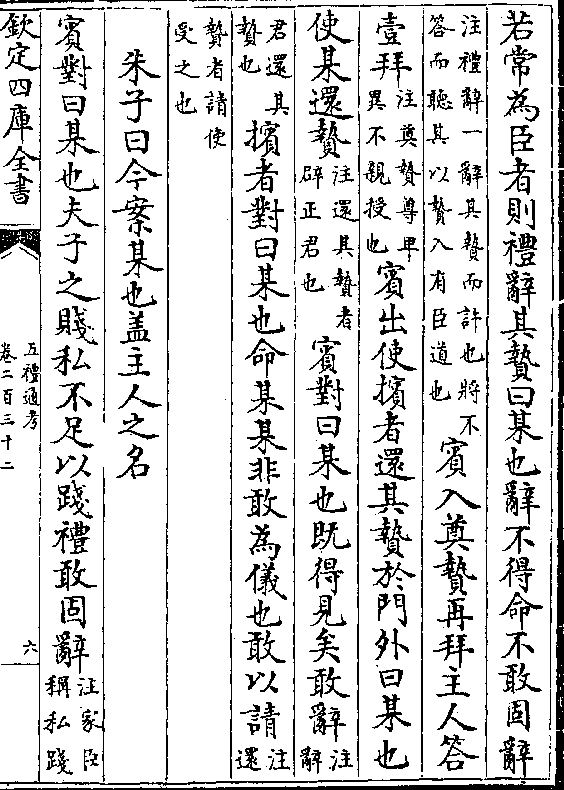 若常為臣者則禮辭其贄曰某也辭不得命不敢固辭
注禮辭一辭其贄而許也將不
答而聽其以贄入有臣道也
賓入奠贄再拜主人答
壹拜
注奠贄尊卑
異不親授也
賓出使擯者還其贄於門外曰某也
使某還贄
注還其贄者
辟正君也
賓對曰某也既得見矣敢辭
注
辭
君還其
贄也
擯者對曰某也命某某非敢為儀也敢以請
注
還
贄者請使
受之也
朱子曰今案某也盖主人之名
賓對曰某也夫子之賤私不足以踐禮敢固辭
注家臣
稱私踐
欽定四庫全書
五禮通考
卷二百三十二
六